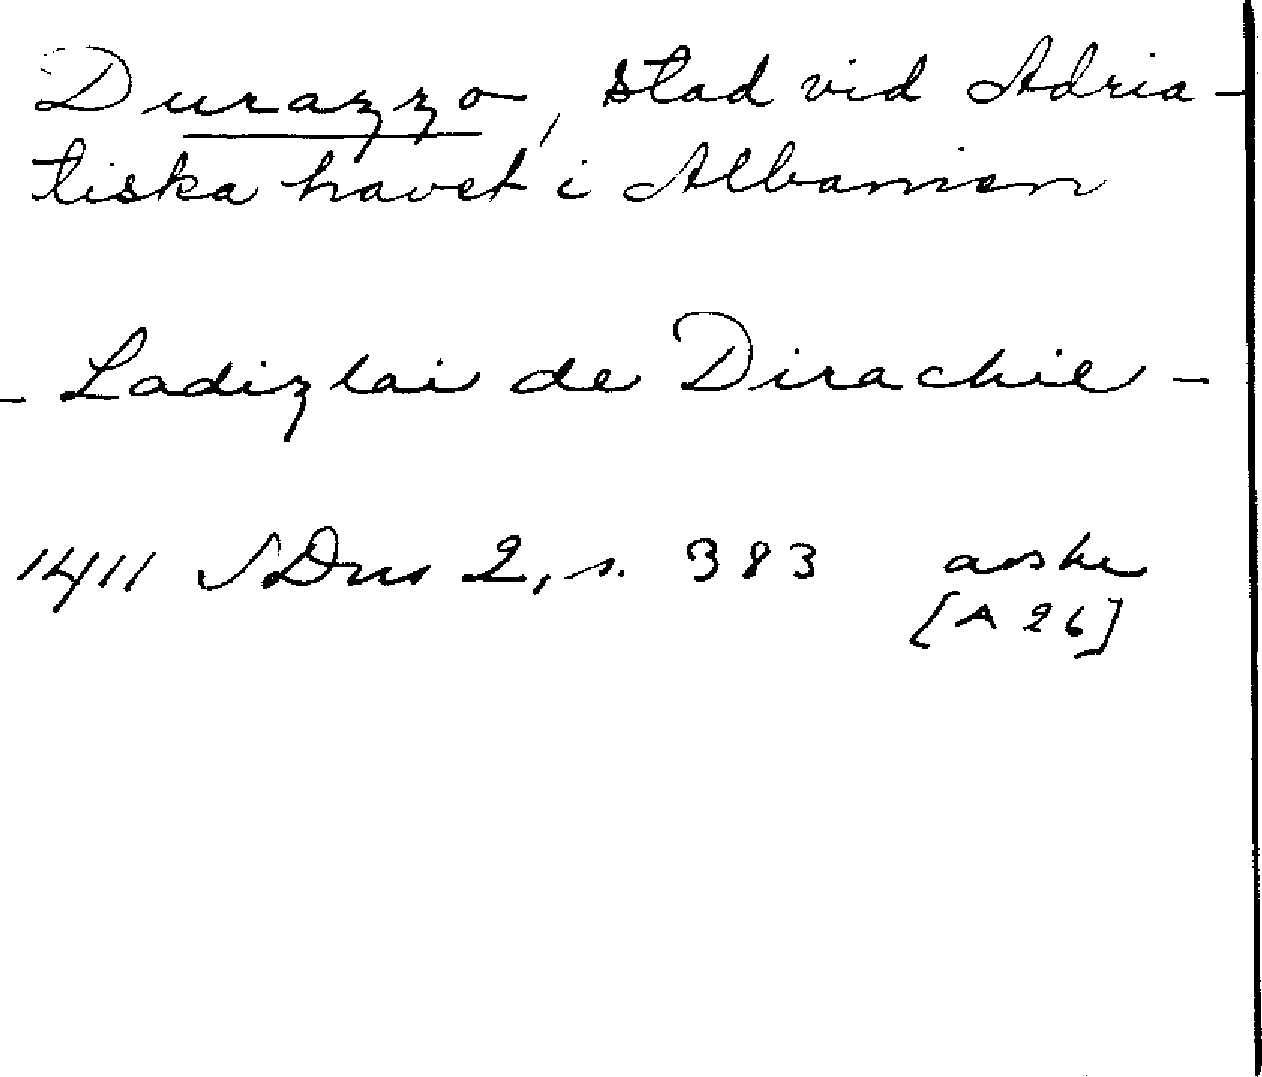 Durazzo, stad vid Adria-
tiska havet i Albanien
- Ladizlai de Dirachie -
1411 SDns 2, s. 383 avskr
[A 26]